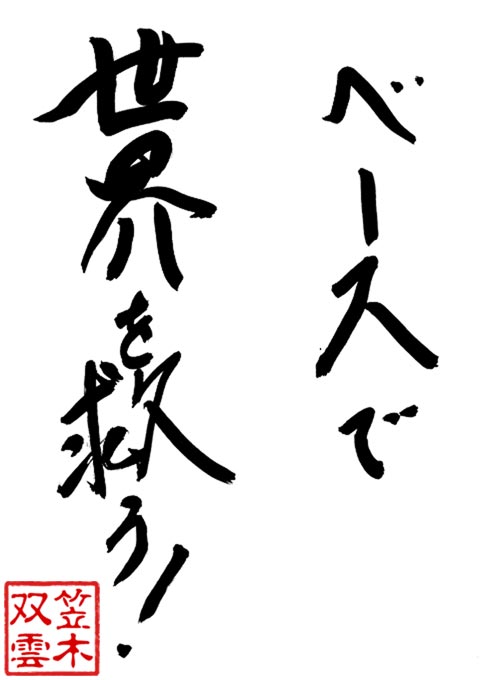 ベースで
世界を救う!
笠木
双雲